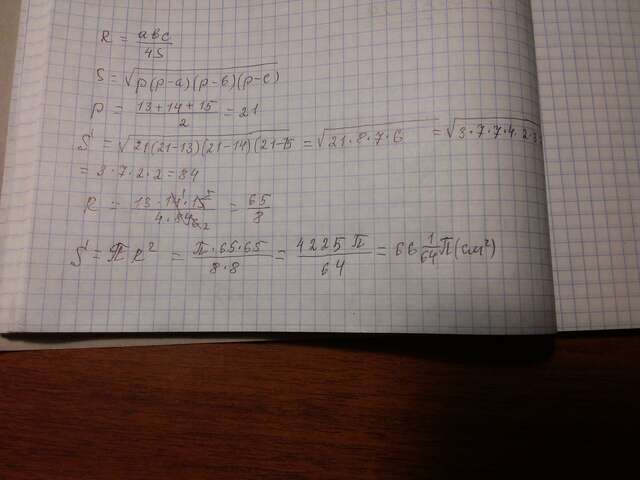 R = abc / 4S
S = √p(p-a)(p-b)(p-c)
p = 13+14+15 / 2 = 21
S = √21(21-13)(21-14)(21-15 = √21·8·7·6 = √3·7·7·4·2·3
= 3·7·2·2 = 84
R = 13·14·15 / 4·84 = 65 / 8
S = πR² = π·65·65 / 8·8 = 4225π / 64 = 66 1/64 π (см²)